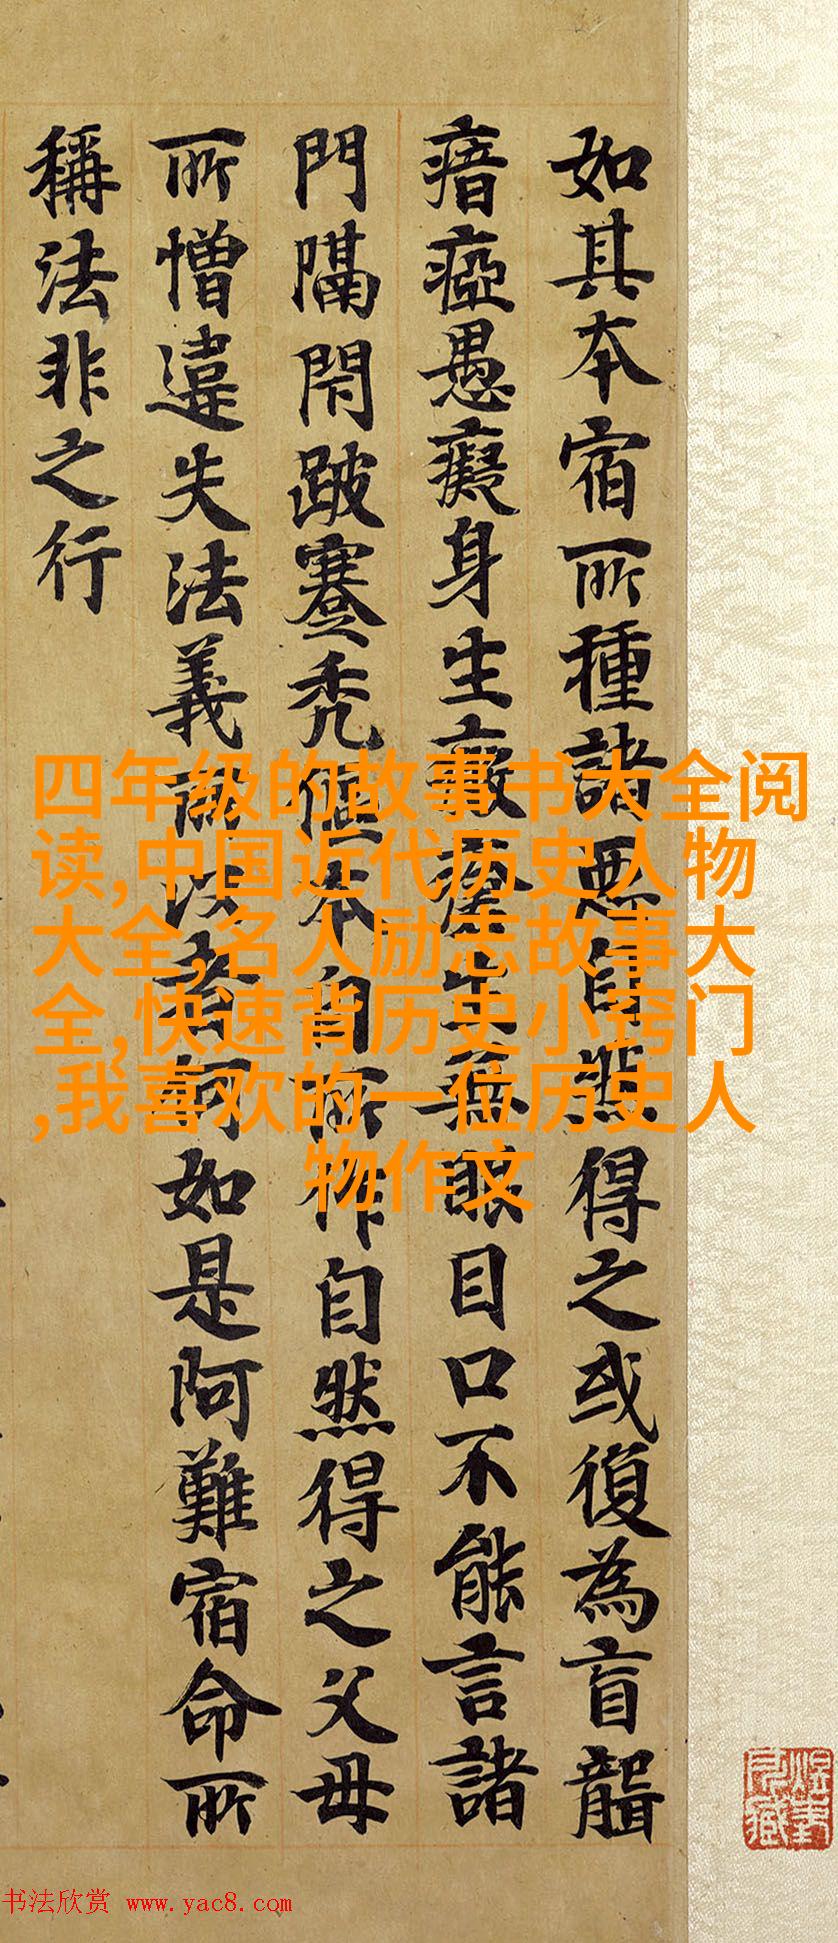 如其本宿所種諸惡自然得之或復為盲聾
瘖瘂愚癡身生瘡生無眼目口不能言諸
門隔閇跛蹇禿傴本自所作自然得之父母
所憎違失法義以者何如是阿難宿命所
稱法非之行
四年级的故事书大全阅
读,中国近代历史人物
大全,名人励志故事大
全,快速背历史小窍门
,我喜欢的一位历史人
物作文
书法欣赏 www.yac8.com